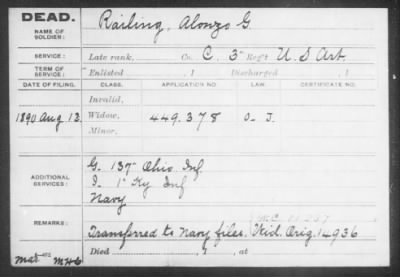 DEAD.
NAME OF SOLDIER:
Railing, Alonzo G.
SERVICE:
Late rank, Co. C. 3" Reg't U. S. Art.
TERM OF SERVICE:
Enlisted , 1 Discharged , 1
DATE OF FILING. CLASS. APPLICATION NO. LAW. CERTIFICATE NO.
Invalid,
1890 Aug 13. Widow, 449.378 O. J.
Minor,
ADDITIONAL SERVICES:
G. 137" Ohio Inf
I. 1" Ky Inf
Navy
REMARKS:
Transferred to Navy files. Wid. Orig. 14936
Died , 1 , at